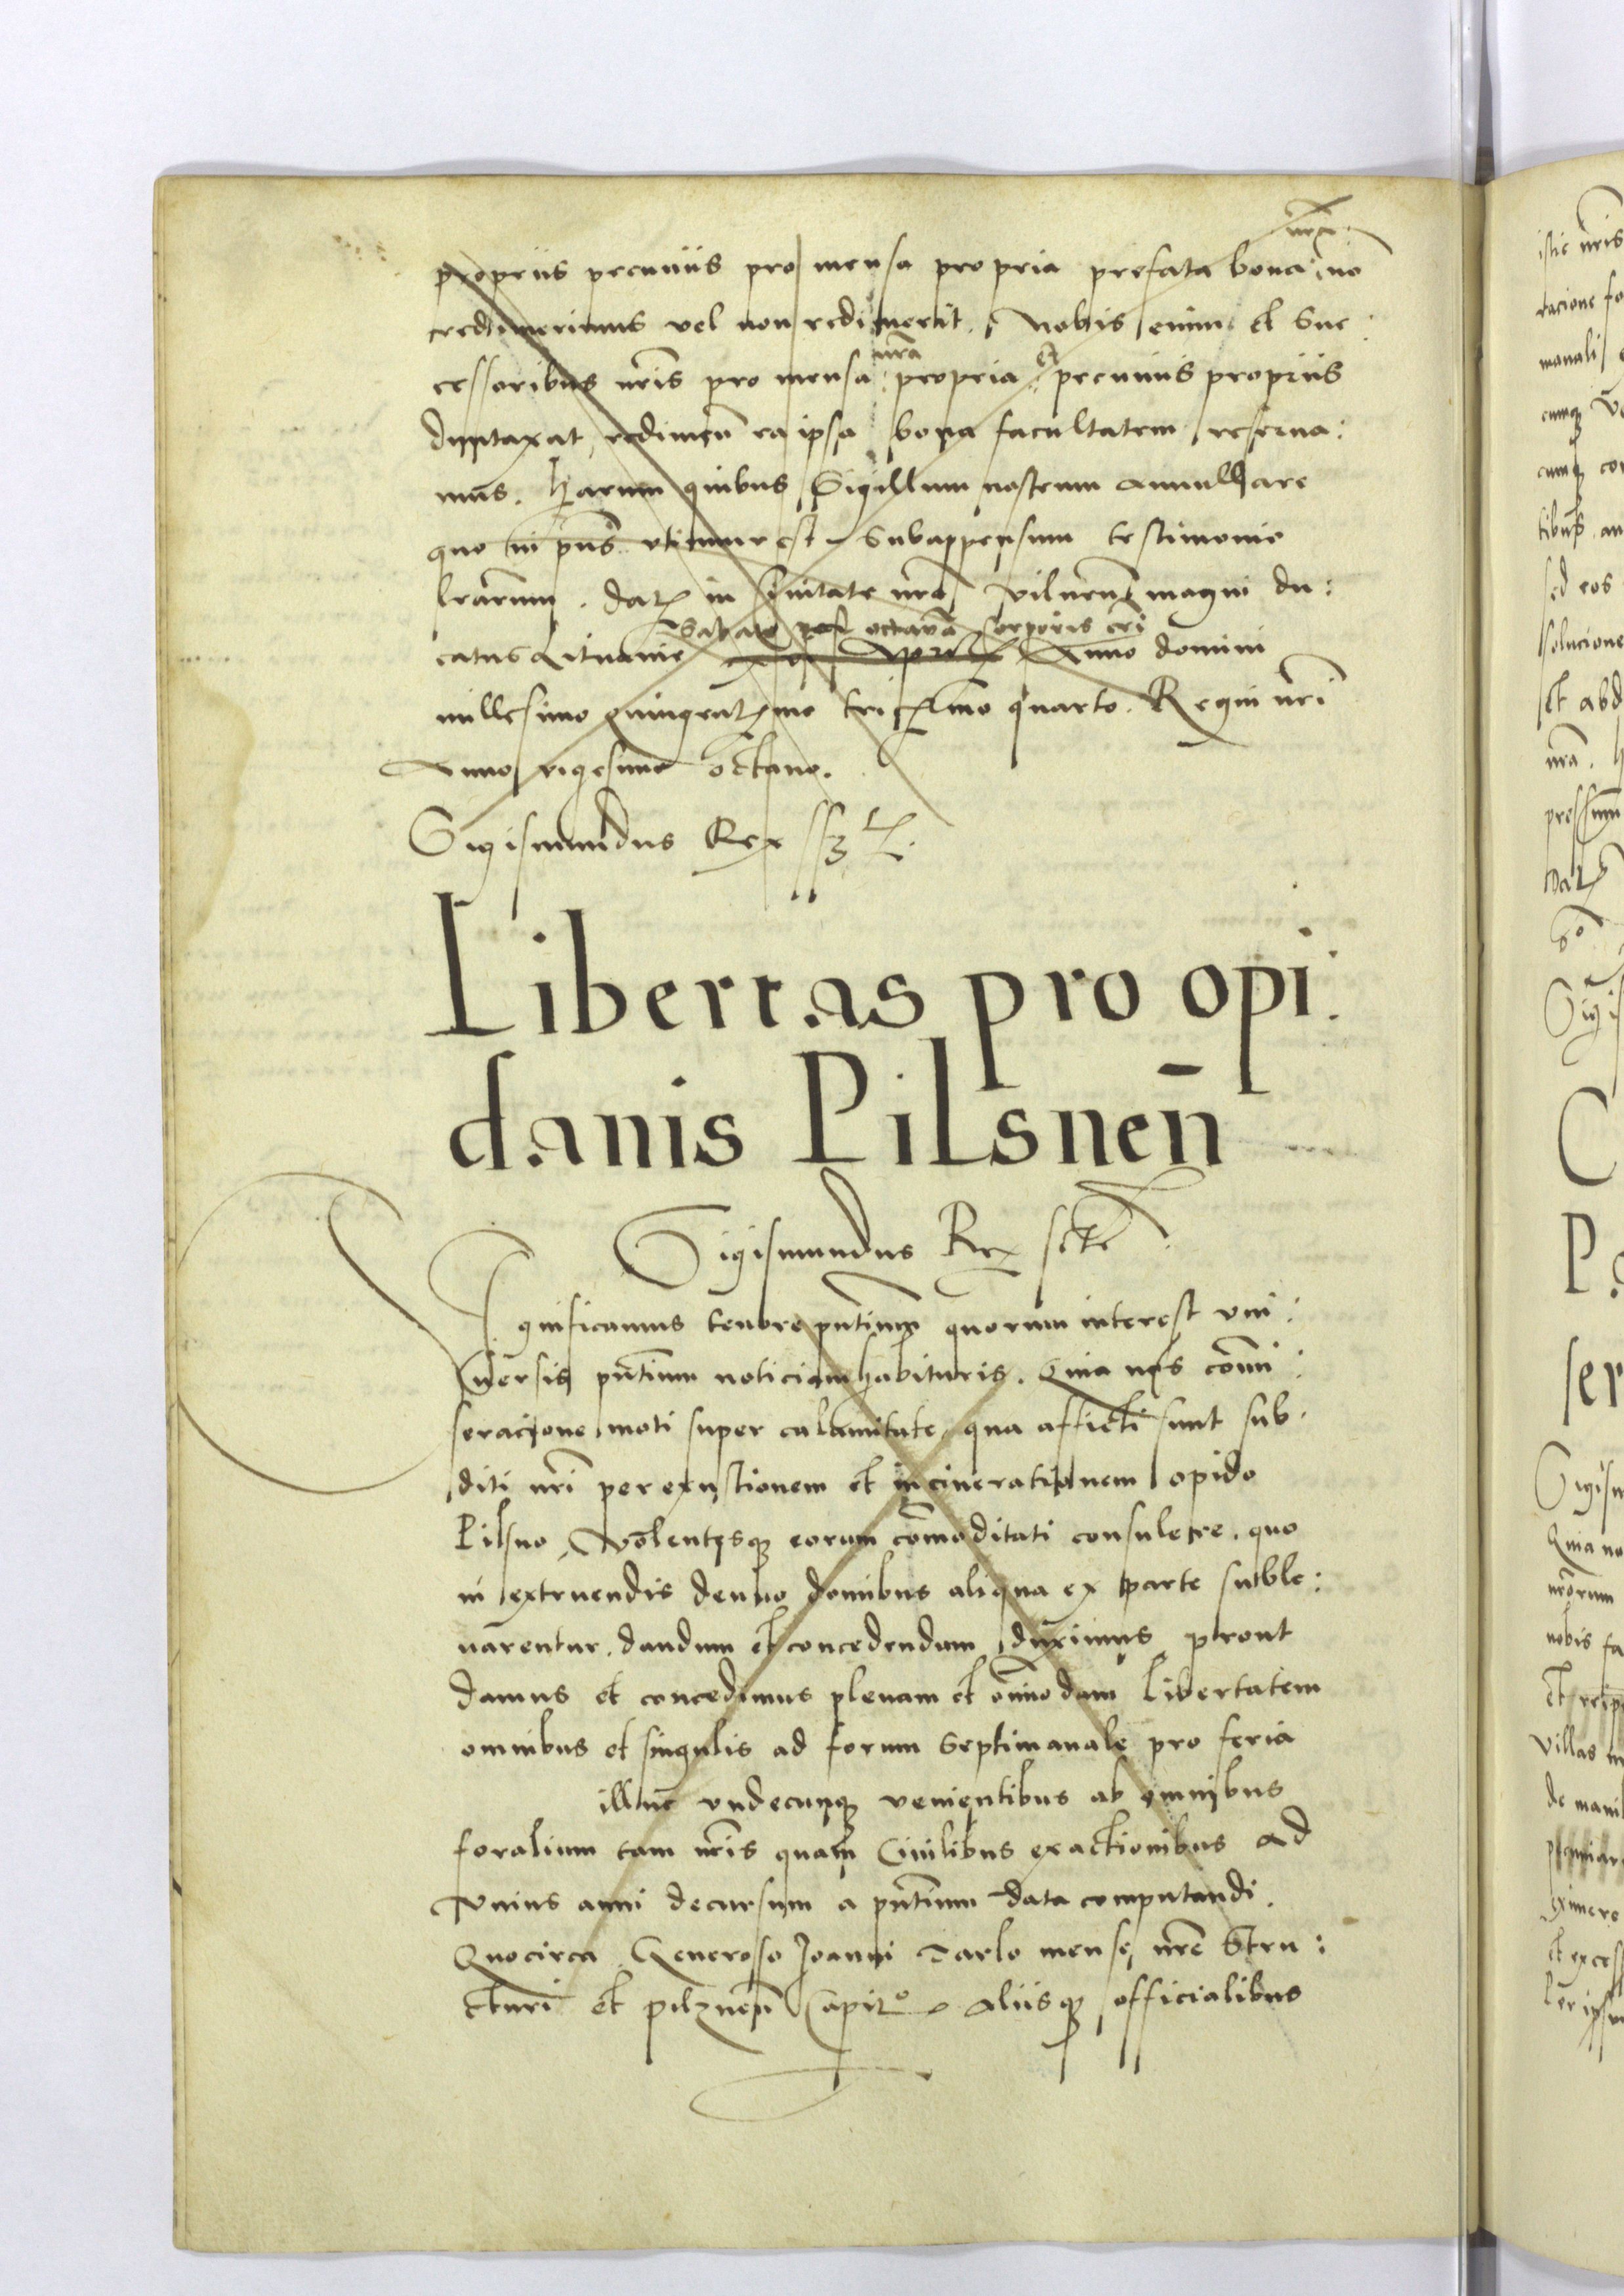 nr̄a
propriis pecuniis pro mensa propria prefata bona no
redimerimus vel non redimerit. Nobis enim et Suc:
nr̄a et
cessoribus nr̄is pro mensa propria pecuniis propriis
duntaxat redimen̄ ea ipsa bona facultatem reserua:
mus. Harum quibus Sigillum nostrum annulare
quo in pn̄s vtimur est Subappensum testimonio
lr̄arum. Dat in Ciuitate nr̄a Vilnen̄ magni du:
Sabato post octauā corporis cri
catus Lituanie Anno domini
millesimo quingen mo tri mo quarto. Regni nr̄i
Anno vigesimo octauo.
Sigismundus Rex
Libertas pro opi:
danis Pilsnen̄
Sigismundus Rex
Significamus tenore pn̄tium quorum interest vni:
uersis pn̄tium noticiam habituris. Quia nos comi:
seracione moti super calamitate qua afficti sunt sub:
diti nr̄i per exustionem et incinerationem opido
Pilsno, Volentesq eorum com̄oditati consulere. quo
in extruendis denuo domibus aliqua ex parte suble:
uarentur. dandum et concedendum duximus prout
damus et concedimus plenam et om̄imodam Libertatem
omnibus et singulis ad forum Septimanale pro feria
illuc vndecunq venientibus ab omnibus
foralium tam nr̄is quam Ciuilibus exactionibus Ad
Vnius anni decursum a pn̄tium data computandi.
Quocirca Generoso Joanni Tarlo mense nr̄e Stru:
cturi et pilznen̄ Capit° aliisq officialibus
istic nr̄is
Quia no
nr̄orum
nobis fa
villas
eximere
et excess